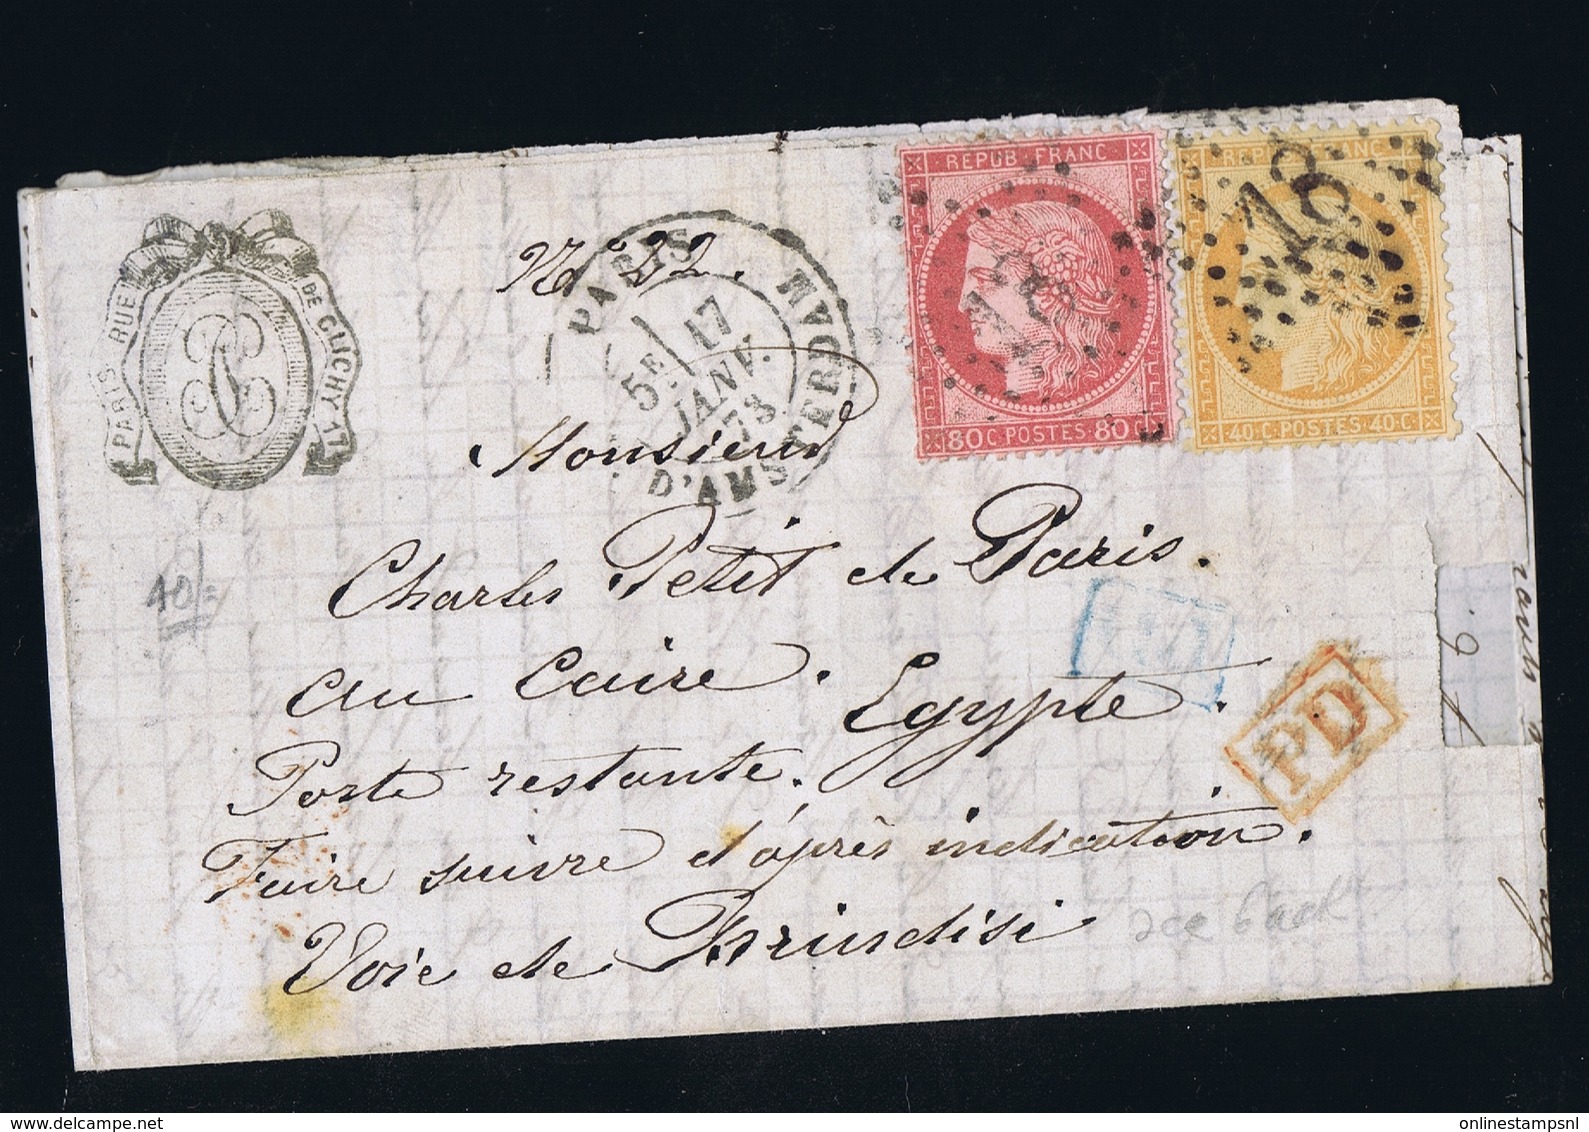 PARIS RUE DE CLICHY 17
No 22.
PARIS
5E
17
JANV.
73
R. D'AMSTERDAM
REPUB. FRANC
80 C. POSTES 80 C
REPUB. FRANC
40 C. POSTES 40 C
18
Monsieur
Charles Petit de Paris.
au Caire. Egypte.
Poste restante.
Faire suivre d'après indication.
Voie de Brindisi
PD
40/=
see back
onlinestampsnl